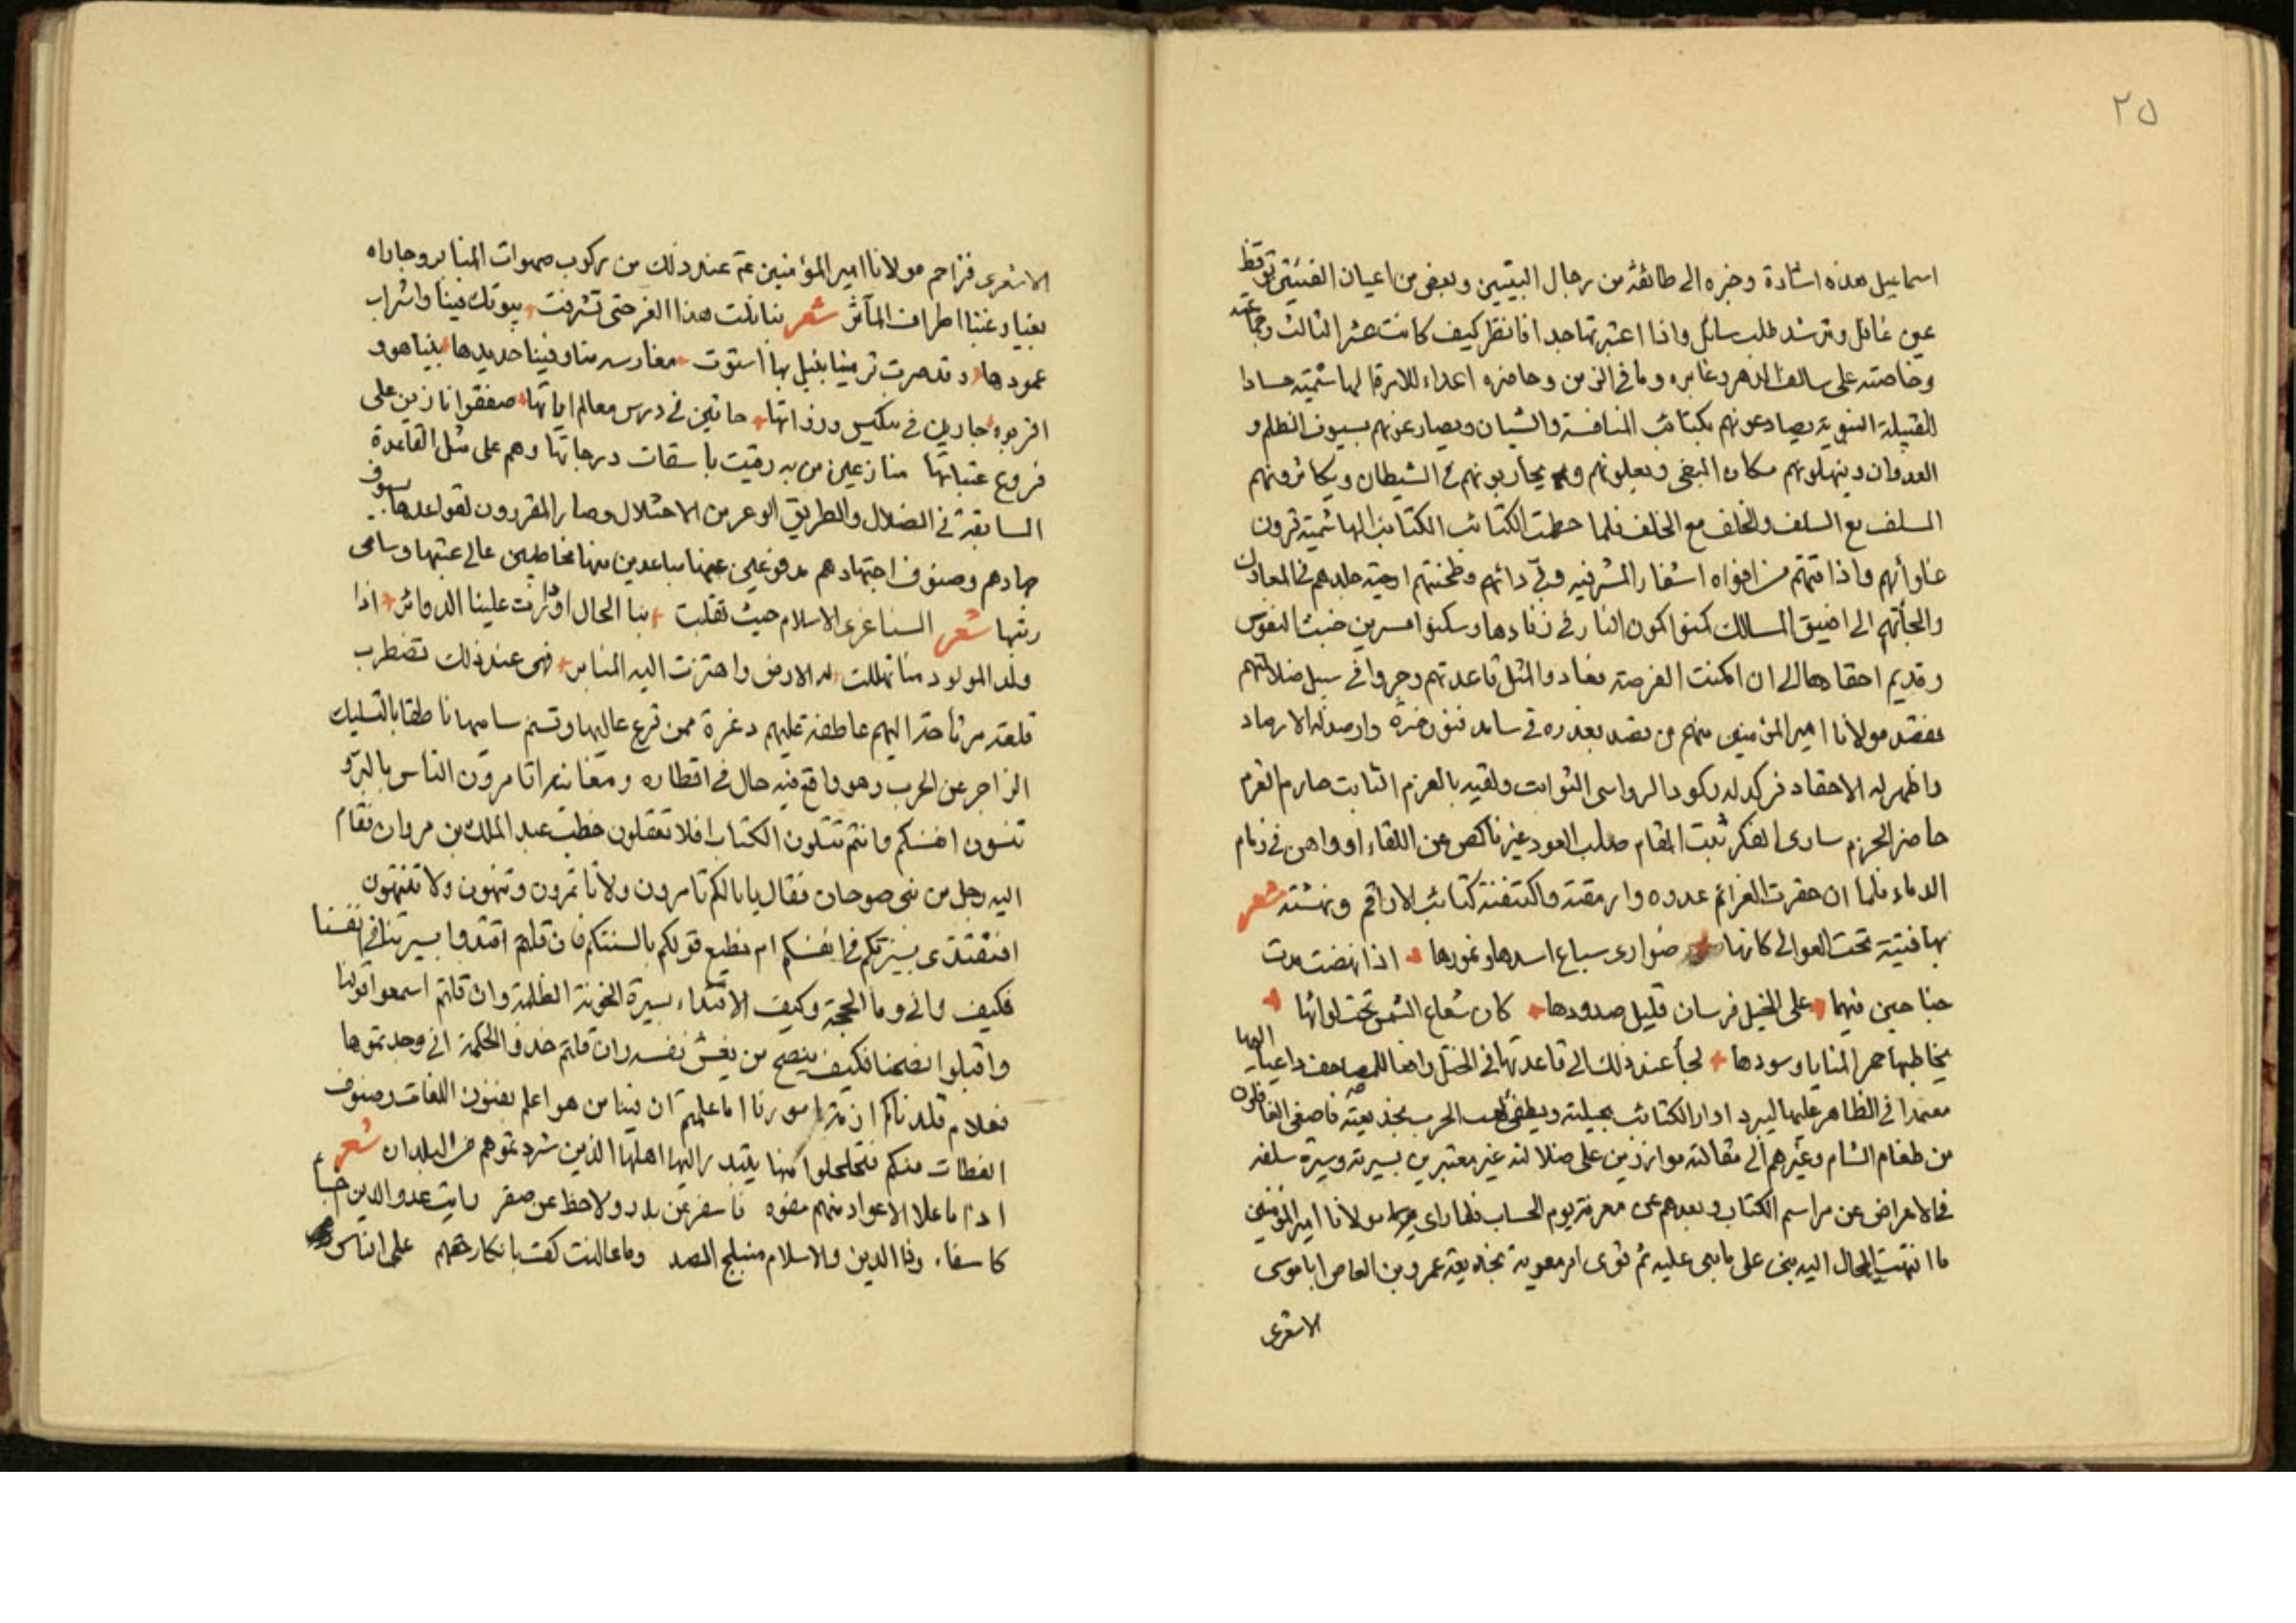 ٢٥
اسماعيل هذه اشادة وخبره الى طائفة من رجال البيتين وبعض من اعيان الفئتين توقظ
عين غافل وترشد طلب سائل واذا اعتبرتها جدا فانظر كيف كانت عشر الثالث وجماعته
وخاصته على سالف الدهر وغابره وما في الزمن وحاضره اعداء للاسرة الهاشمية حسادا
للقبيلة النبوية يصادعونهم بكتائب المنافسة والشنان ويصارعونهم بسيوف الظلم و
العدوان وينهلونهم مكان البغي ويعلونهم ويحاربونهم في الشيطان ويكاثرونهم
السلف مع السلف والخلف مع الخلف فلما حطمت الكتائب الكتائب الهاشمية قرون
واذاقتهم من افواه اشفار المشرفيه وطحنتهم ارحية جلدهم في المعارك
والجأتهم الى اضيق المسالك كمنوا كمون النار في زنادها وسكنوا مسرين خبث النفوس
وقديم احقادها الى ان امكنت الفرصة فعادوا لمثل قاعدتهم وجروا في سبيل ضلالتهم
فقصد مولانا امير المؤمنين منهم من قصد بغدره وارصد له الارصاد
واظهر له الاحقاد فركد له ركود الرواسي الثوابت ولقيه بالعزم الثابت صارم العزم
حاضر الحزم سارى الفكر ثبت المقام صلب العود غير ناكص عن اللقاء او واهن في
الدماء فلما ان حقرت العزائم عدوه وارمقته واكتنفته كتائب الاراقم ونهشته شعر
بها فتية تحت العوالى كانها ضوارى سباع اسدها ونمورها اذا نهضت مدت
جناحين منهما على الخيل فرسان قليل صدودها كان شعاع الشمس تحت لوائها
يخاطبها حمر المنايا وسودها لجأ عند ذلك الى قاعدتها في الختل رافعا للمصاحف داعيا اليها
معتمدا في الظاهر عليها ليبرد اوار الكتائب بحيلته ويطفئ لهب الحرب بخديعته فاصغى الغافلون
من طغام الشام وغيرهم الى مقالته موازرين على ضلالته غير معتبرين بسيرته وسيرة سلفه
في الاعراض عن مراسم الكتاب وبعدهم عن معرفة يوم الحساب فلما راى مولانا امير المؤمنين
ما انتهت الحال اليه بنى على ما بنى عليه ثم قوى امر معوية بخديعة عمرو بن العاص ابا موسى
الاشعرى
الاشعرى فزاحم مولانا امير المؤمنين عم عند ذلك من ركوب صهوات المنابر وجاراه
اطراف المآثر شعر بنا نلت هذا الفخر حتى تشرفت بيوتك فينا واشراب
عمودها وقد صرت ترمينا بنبل بها استوت مغارسه منا وفينا حديدها بنياهو و
جارين في حاثين في درس معالم اياتها صفقوا نازين على
فروع عتباتها منازعين من به رقيت باسقات درجاتها وهم على مثل القاعدة
السابقة في الضلال والطريق الوعر من الاختلال وصار المقررون لقواعدها بسيوف
جهادهم وصنوف اجتهادهم مدفوعين عنها مباعدين منها مخاطبين عالى عتبها وسامى
رتبها شعر السنا عرى الاسلام حيث تقلبت بنا الحال او دارت علينا الدوائر اذا
ولد المولود منا تهللت له الارض واهتزت اليه المنابر فهى عند ذلك تضطرب
قلعة مرتاحة اليهم عاطفة عليهم ممن قرع عاليها وتسنم ساميها ناطقا بالتسليك
الزاجر عن الحرب وهو واقع فيه حال في اقطاره اتامرون الناس بالبر و
تنسون انفسكم وانتم تتلون الكتاب افلا تعقلون خطب عبد الملك بن مروان فقام
اليه رجل من بنى صوحان فقال يا بالكم تامرون ولا تاتمرون وتنهون ولا تنتهون
افنقتدى بسيرتكم في انفسكم ام نطيع قولكم بالسنتكم فان قلتم اقتدوا بسيرتنا في انفسنا
فكيف وانى وما الحجة وكيف الاقتداء بسيرة الخونة الظلمة وان قلتم اسمعوا قولنا
واقبلوا نصحنا فكيف ينصح من يغش نفسه وان قلتم خذوا الحكمة انى وجدتموها
فعلام قلدناكم ازمة امورنا اما علمتم ان فينا من هو اعلم بفنون اللغات وصنوف
العظات منكم فتحلحلوا عنها يبتدر اليها اهلها الذين شردتموهم في البلدان شعر
اذا ما علا الاعواد منهم مفوه فاسفر عن بدر ولاحظ عن صقر رايت عدو الدين
كاسفا والاسلام منبلج الصدر كفت بانكار حقهم على الناس